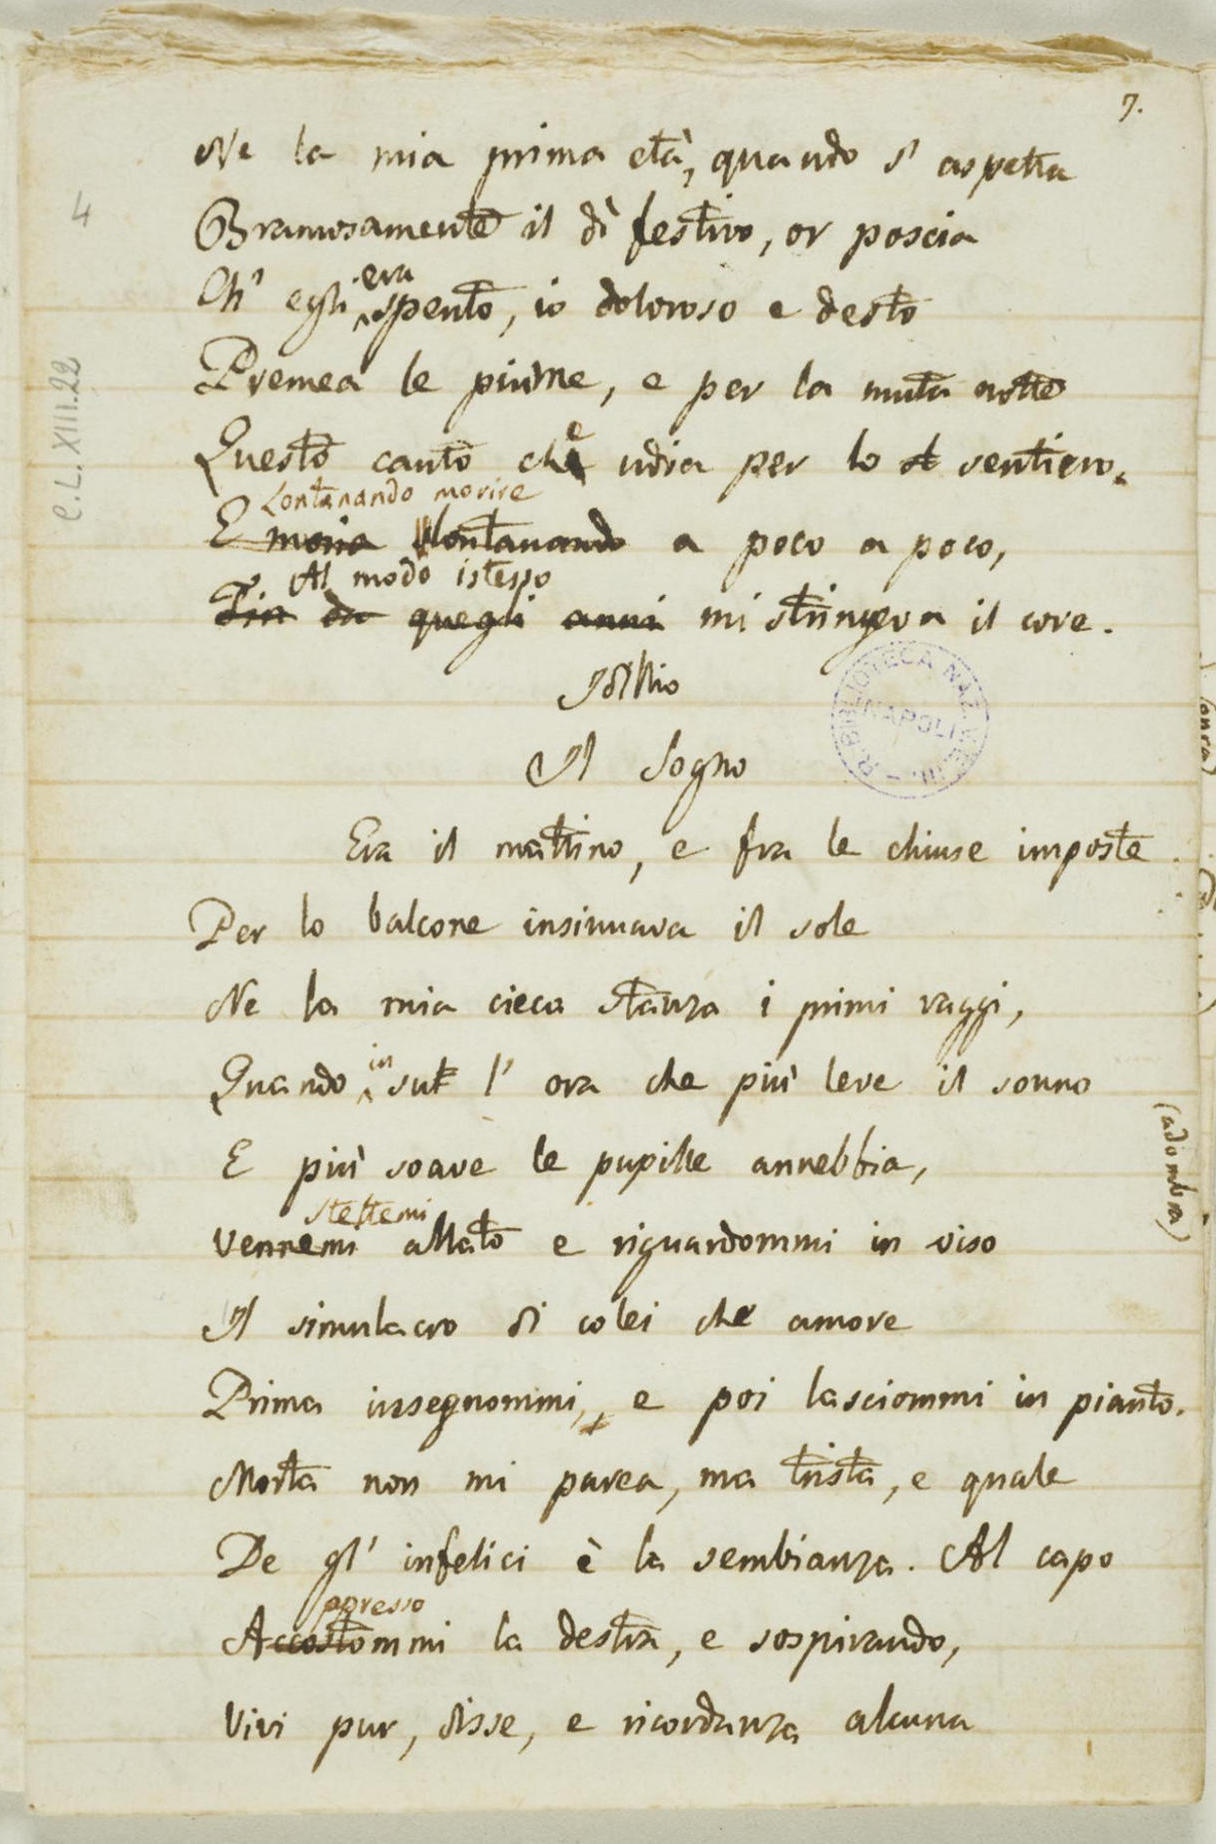 7.
Ne la mia prima età, quando s' aspetta
4
Bramosamente il dì festivo, or poscia
era
Ch' egli spento, io doloroso e desto
Premea le piume, e per la muta notte
C.L. XIII.22
Questo canto che udia per lo sentiero.
Lontanando morire
E moria lontanando a poco a poco,
Al modo istesso
Fin da quegli anni mi stringeva il core.
Idillio
R. BIBLIOTECA NAZ. V. E. III. - NAPOLI
Il Sogno
Era il mattino, e fra le chiuse imposte
Per lo balcone insinuava il sole
Ne la mia cieca stanza i primi raggi,
in
Quando sul l' ora che più leve il sonno
E più soave le pupille annebbia,
(adombra)
stettemi
Vennemi allato e riguardommi in viso
Il simulacro di colei che amore
Prima insegnommi, e poi lasciommi in pianto.
Morta non mi parea, ma trista, e quale
De gl' infelici è la sembianza. Al capo
ppresso
Accostommi la destra, e sospirando,
Vivi pur, disse, e ricordanza alcuna